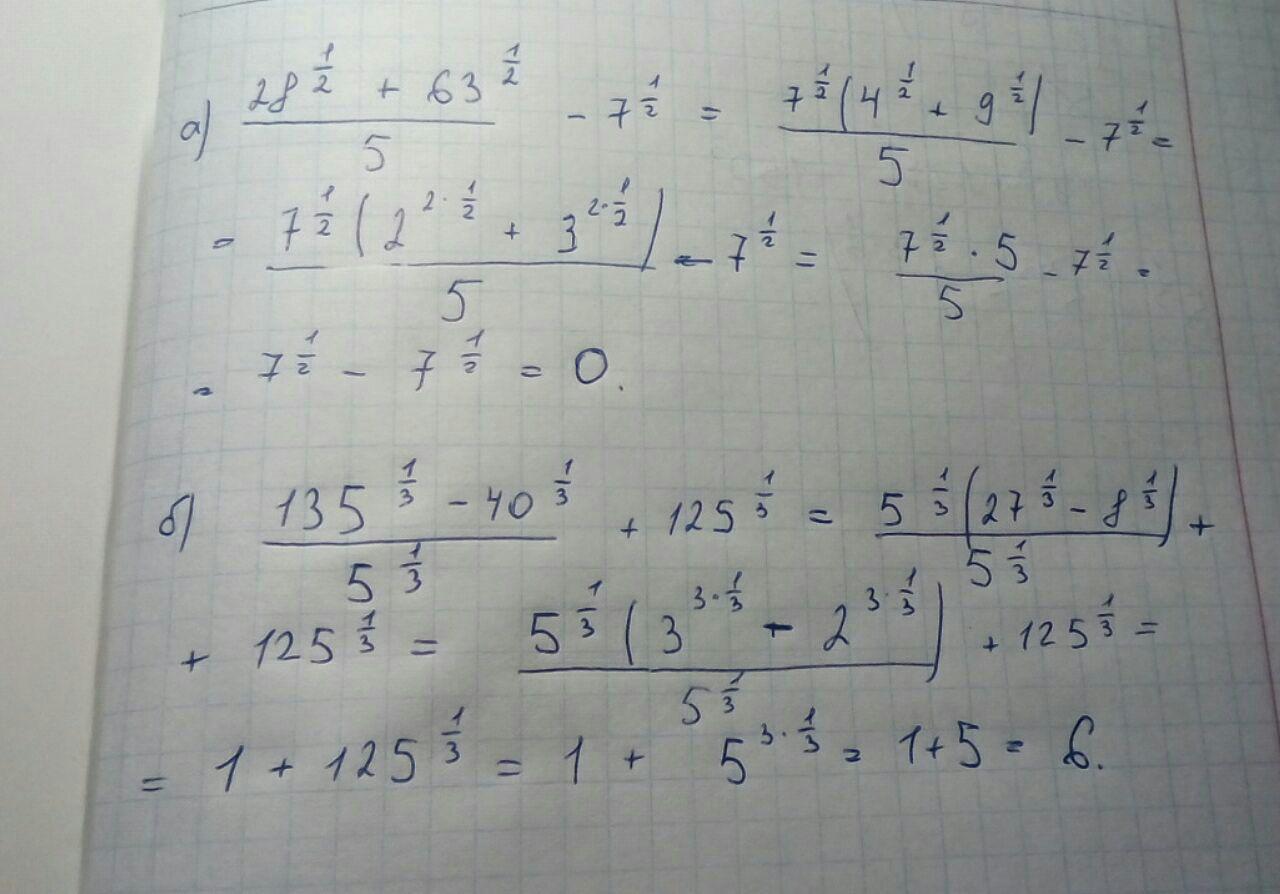 а) (28^(1/2) + 63^(1/2))/5 - 7^(1/2) = (7^(1/2)(4^(1/2) + 9^(1/2)))/5 - 7^(1/2) =
= (7^(1/2)(2^(2·1/2) + 3^(2·1/2)))/5 - 7^(1/2) = (7^(1/2) · 5)/5 - 7^(1/2) =
= 7^(1/2) - 7^(1/2) = 0.
б) (135^(1/3) - 40^(1/3))/5^(1/3) + 125^(1/3) = (5^(1/3)(27^(1/3) - 8^(1/3)))/5^(1/3) +
+ 125^(1/3) = (5^(1/3)(3^(3·1/3) - 2^(3·1/3)))/5^(1/3) + 125^(1/3) =
= 1 + 125^(1/3) = 1 + 5^(3·1/3) = 1+5 = 6.